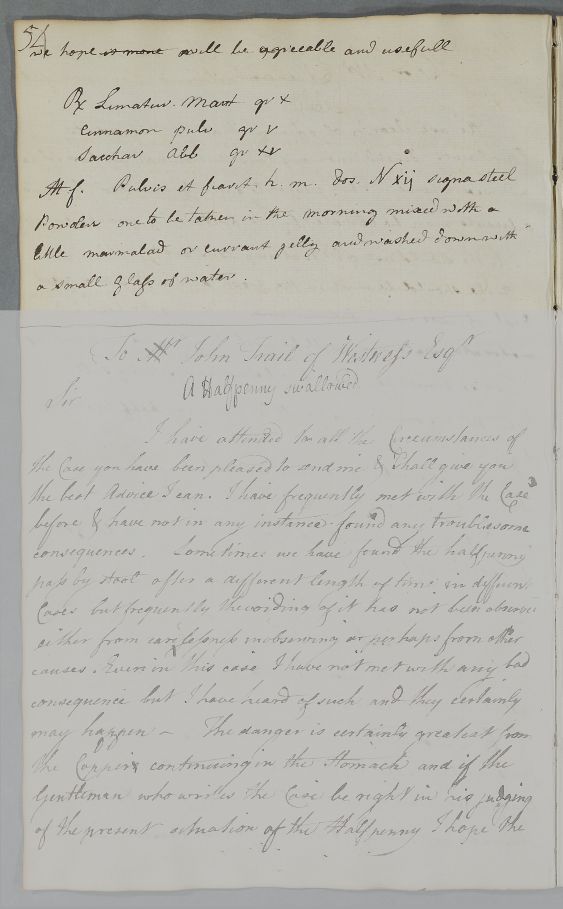 54
we hope is more will be agreeable and usefull
Rx Limatur. Mart gr x
Cinnamon pulv gr v
Sacchar Alb gr xv
M f. Pulvis et fiant h. m. dos. N xij signa steel
Powders one to be taken in the morning mixed with a
little marmalad or currant gelly and washed down with
a small glass of water.
To Mr John Trail of Westness Esqr
A Halfpenny swallowed
Sir
I have attended to all the Circumstances of
the Case you have been pleased to send me & shall give you
the best Advice I can. I have frequently met with the Case
before & have not in any instance found any troublesome
consequences. Sometimes we have found the halfpenny
pass by stool after a different length of time in differen
Cases but frequently the voiding of it has not been observed
either from carelessness in observing or perhaps from other
causes. Even in this case I have not met with any bad
consequence but I have heard of such and they certainly
may happen – The danger is certainly greatest from
the Copper continuing in the Stomach and if the
Gentleman who writes the Case be right in his judging
of the present situation of the Halfpenny I hope the